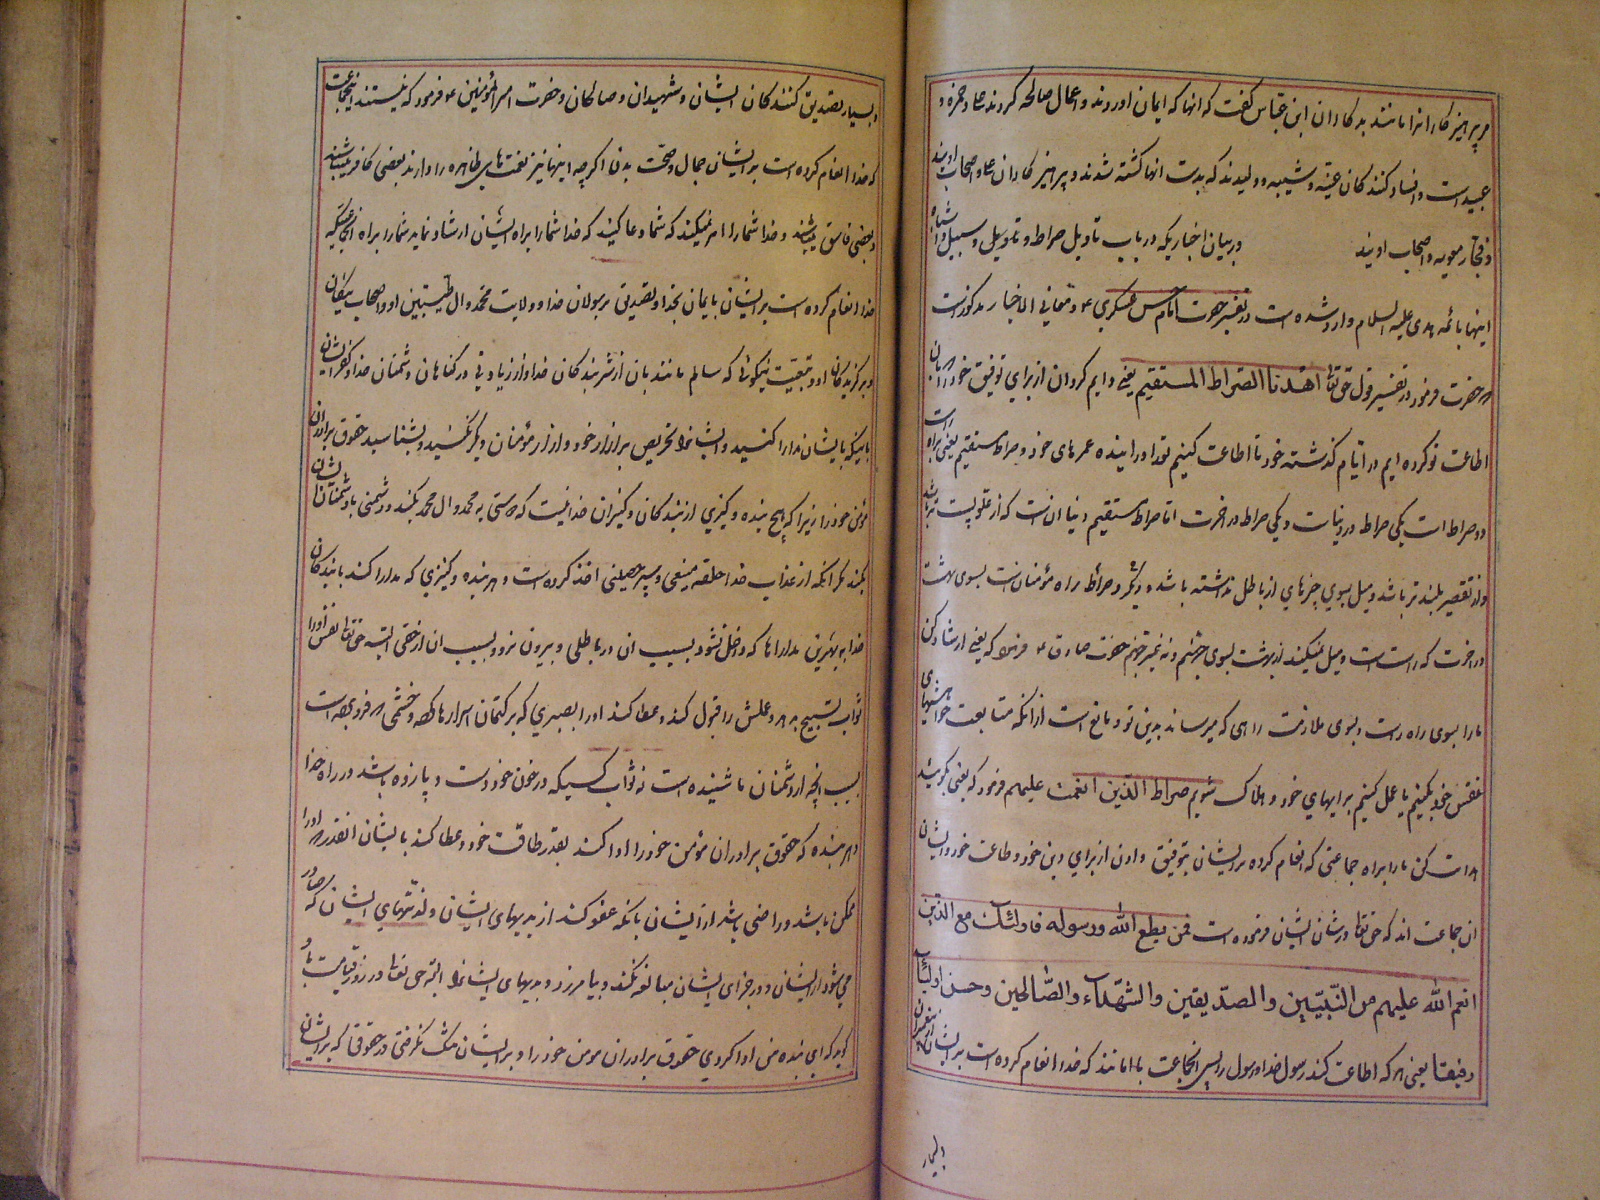 مر پرهیزکارانرا مانند بدکاران ابن عباس گفت که انها که ایمان اوردند و اعمال صالحه کردند علی و حمزه و
عبیده است و افساد کنندکان عتبه و شیبه و ولیدند که بدست انها کشته شدند و پرهیزکاران علی و اصحاب اویند
و فجار معویه و اصحاب اویند در بیان اخباریکه در باب تاویل صراط و تاویل و سبیل و اشباه
اینها بائمه هدی علیه السلام وارد شده است در تفسیر حضرت امام حسن عسکری ع و معانی الاخبار مذکورست
حضرت فرمود در تفسیر قول حق تعالی اهدنا الصراط المستقیم یعنی دایم کردان از برای توفیق خود را
اطاعت تو کرده ایم در ایام کذشته خود تا اطاعت کنیم تو را در اینده عمرهای خود و صراط مستقیم یعنی براه راست
دو صراط است یکی صراط در دنیاست و یکی صراط در اخرت اما صراط مستقیم دنیا انست که از غلو پست تر باشد
و از تقصیر بلند تر باشد و میل بسوی چیزهای از باطل نداشته باشد و دیگر صراط راه مؤمنانست بسوی بهشت
در اخرت که راست است و میل نمیکنند از بهشت بسوی جهنم و نه غیر جهنم حضرت صادق ع فرمود که یعنی ارشاد کن
مارا بسوی راه راست و بسوی ملازمت راهی که میرساند بدین تو و مانع است از انکه متابعت خواهشهای
نفس خود بکنیم یا عمل کنیم برایهای خود و هلاک شویم صراط الذین انعمت علیهم فرمود که یعنی بکوئید
هدایت کن مارا براه جماعتی که انعام کرده بر ایشان بتوفیق دادن از برای دین خود و طاعت خود و ایشان
ان جماعت اند که حق تعالی در شان ایشان فرموده است فمن یطع الله ورسوله فاولئك مع الذین
انعم الله علیهم من النّبیّین والصدیقین والشهداء والصّالحین وحسن اولئك
رفیقا یعنی هر که اطاعت کند رسول خدا و رسول را پس انجماعت با انانند که خدا انعام کرده است بر ایشان از پیغمبران
و بسیار
و بسیار تصدیق کنندکان ایشان و شهیدان و صالحان و حضرت امیر المؤمنین ع فرمود که نیستند اینجماعت
که خدا انعام کرده است بر ایشان بمال و صحت بدن اکرچه اینها نیز نعمت های ظاهره را دارند بعضی کافر میباشند
و بعضی فاسق میباشند و خدا شما را امر نمیکند که شما دعا کنید که خدا شما را براه ایشان ارشاد نماید شما را براه انجماعتیکه
خدا انعام کرده است بر ایشان بایمان بخدا و تصدیق برسولان خدا و ولایت محمد و ال طیبین او و اصحاب نیکان
و برکزیدکان او و تقیت نیکوئی که سالم مانند بان از شر بندکان خدا و از زیادتی در کناهان دشمنان خدا و کفر ایشان
بانیکه بایشان مدارا کنید و ایشانرا تحریص بر ازار خود و ازار مؤمنان دیکر نکنید و بشناسید حقوق برادران
مؤمن خود را زیرا که هیچ بنده و کنیزی از بندکان و کنیزان خدا نیست که دوستی به محمد و ال محمد بکند و دشمنی با دشمنان ایشان
بکند مکر انکه از عذاب خدا حلقه منیعی و سپر حصینی اخذ کرده است و هر بنده و کنیزی که مدارا کند با بندکان
خدا به بهترین مداراها که داخل نشود بسبب ان در باطلی و بیرون نرود بسبب ان از حقی البته حق تعالی نفس او را
ثواب تسبیح دهد و عملش را قبول کند و عطا کند او را بصبری که بر کتمان اسرار ما کرده و خشمی که فرو برده است
بسبب انچه از دشمنان ما شنیده است ثواب کسیکه در خون خود دست و پا زده باشد در راه خدا
و هر بنده که حقوق برادران مؤمن خود را ادا کند بقدر طاقت خود و عطا کند بایشان انقدر که او را
ممکن باشد و راضی باشد از ایشان بانکه عفو کند از بدیهای ایشان و لغزشهای ایشان که صادر
می شود از ایشان و در جزای ایشان مبالغه نکند و بیامرزد بدیهای ایشانرا البته حق تعالی در روز قیامت باو
کوید که ای بنده من ادا کردی حقوق برادران مومن خود را و بر ایشان تنک نکرفتی در حقوقی که بر ایشان